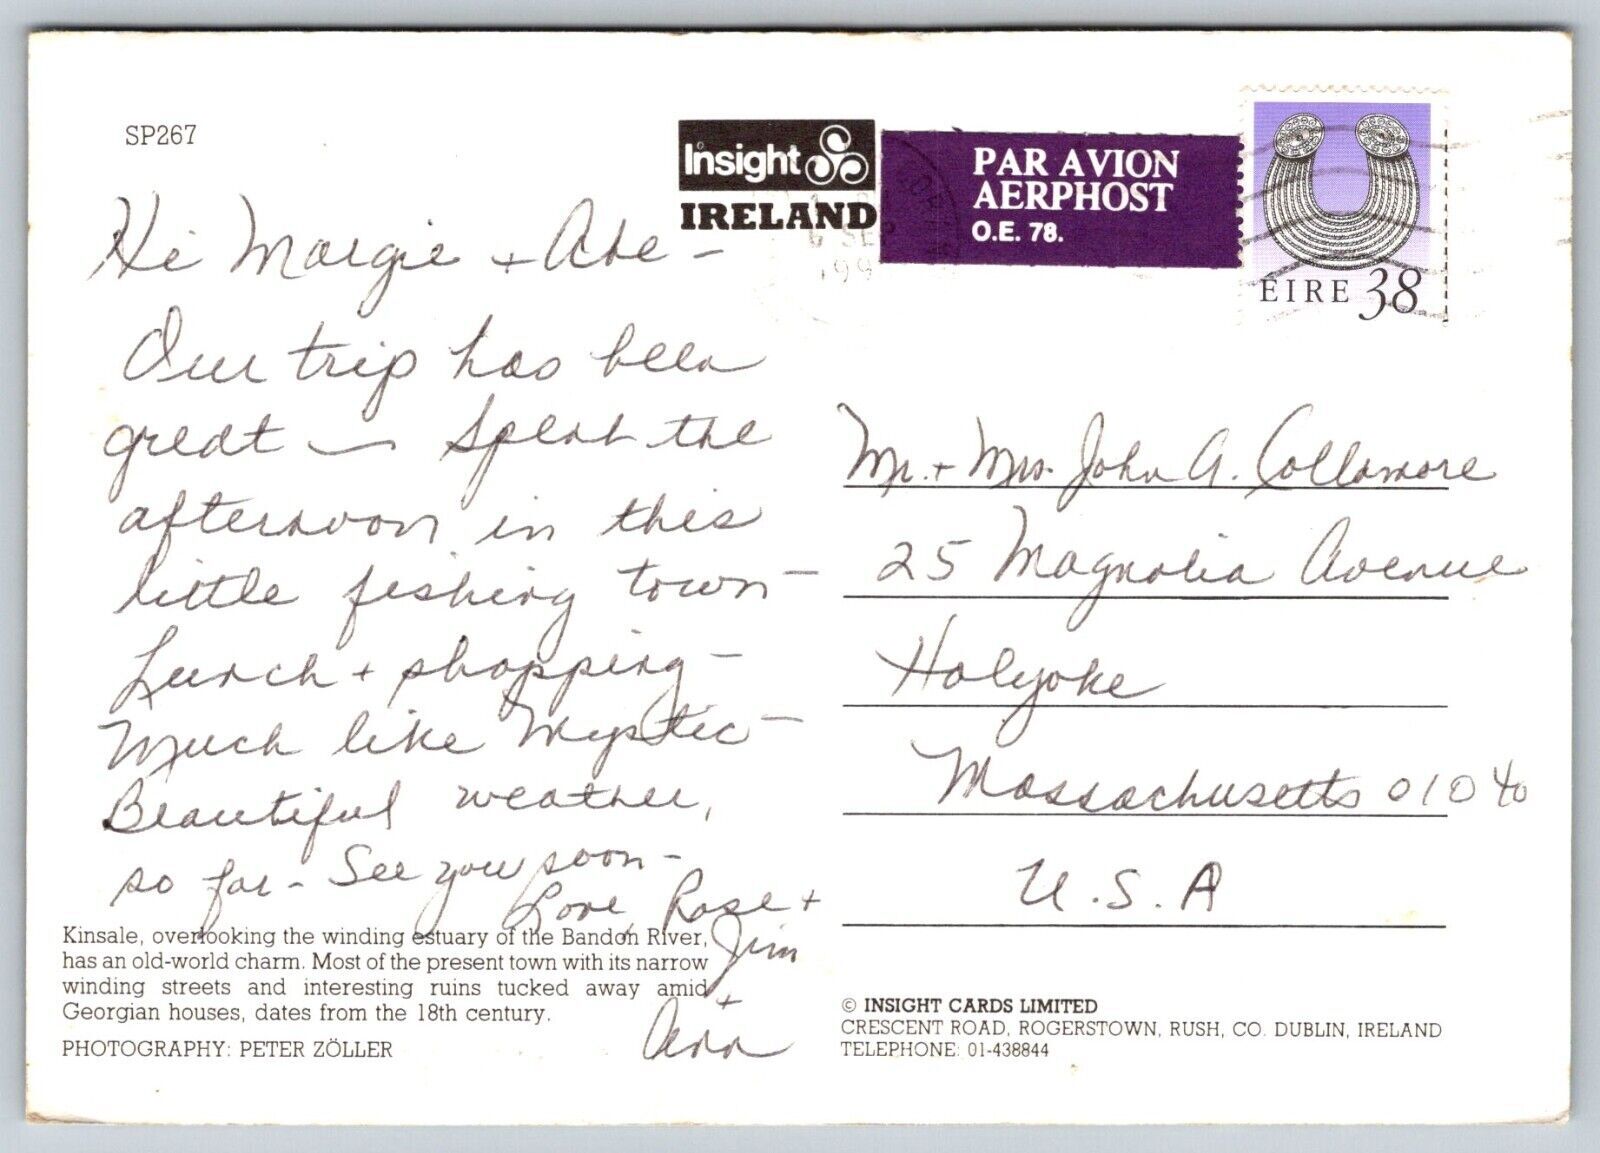 SP267
Insight
IRELAND
PAR AVION
AERPHOST
O.E. 78.
EIRE 38
6 SEP
199
Hi Margie + Abe -
Our trip has been
great - Spent the
afternoon in this
little fishing town -
Lunch + shopping -
Much like Mystic -
Beautiful weather,
so far - See you soon -
Love, Rose +
Jim
+
Ann
Mr. + Mrs. John A. Collamore
25 Magnolia Avenue
Holyoke
Massachusetts 01040
U.S.A
Kinsale, overlooking the winding estuary of the Bandon River,
has an old-world charm. Most of the present town with its narrow
winding streets and interesting ruins tucked away amid
Georgian houses, dates from the 18th century.
PHOTOGRAPHY: PETER ZÖLLER
© INSIGHT CARDS LIMITED
CRESCENT ROAD, ROGERSTOWN, RUSH, CO. DUBLIN, IRELAND
TELEPHONE: 01-438844